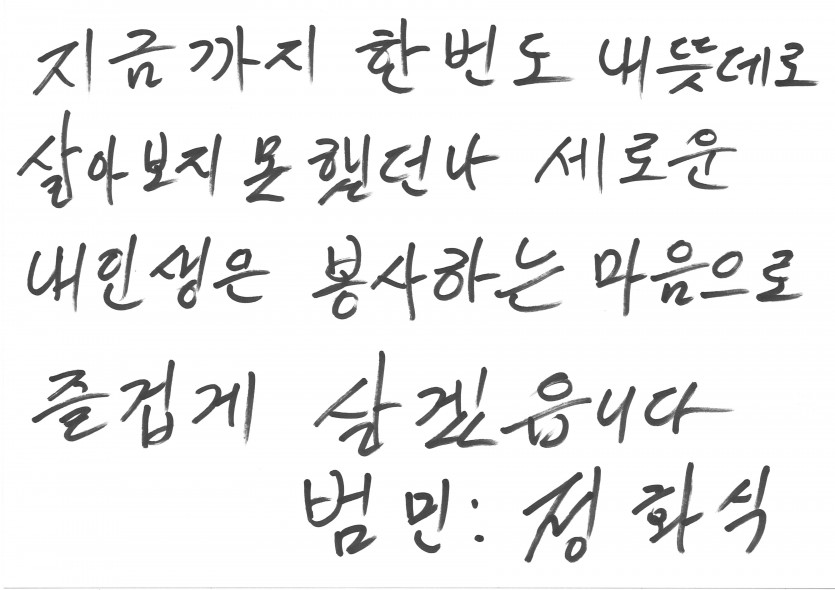 지금까지 한번도 내뜻데로
살아보지 못했던나 세로운
내인생은 봉사하는 마음으로
즐겁게 살겠읍니다
범민: 정화식